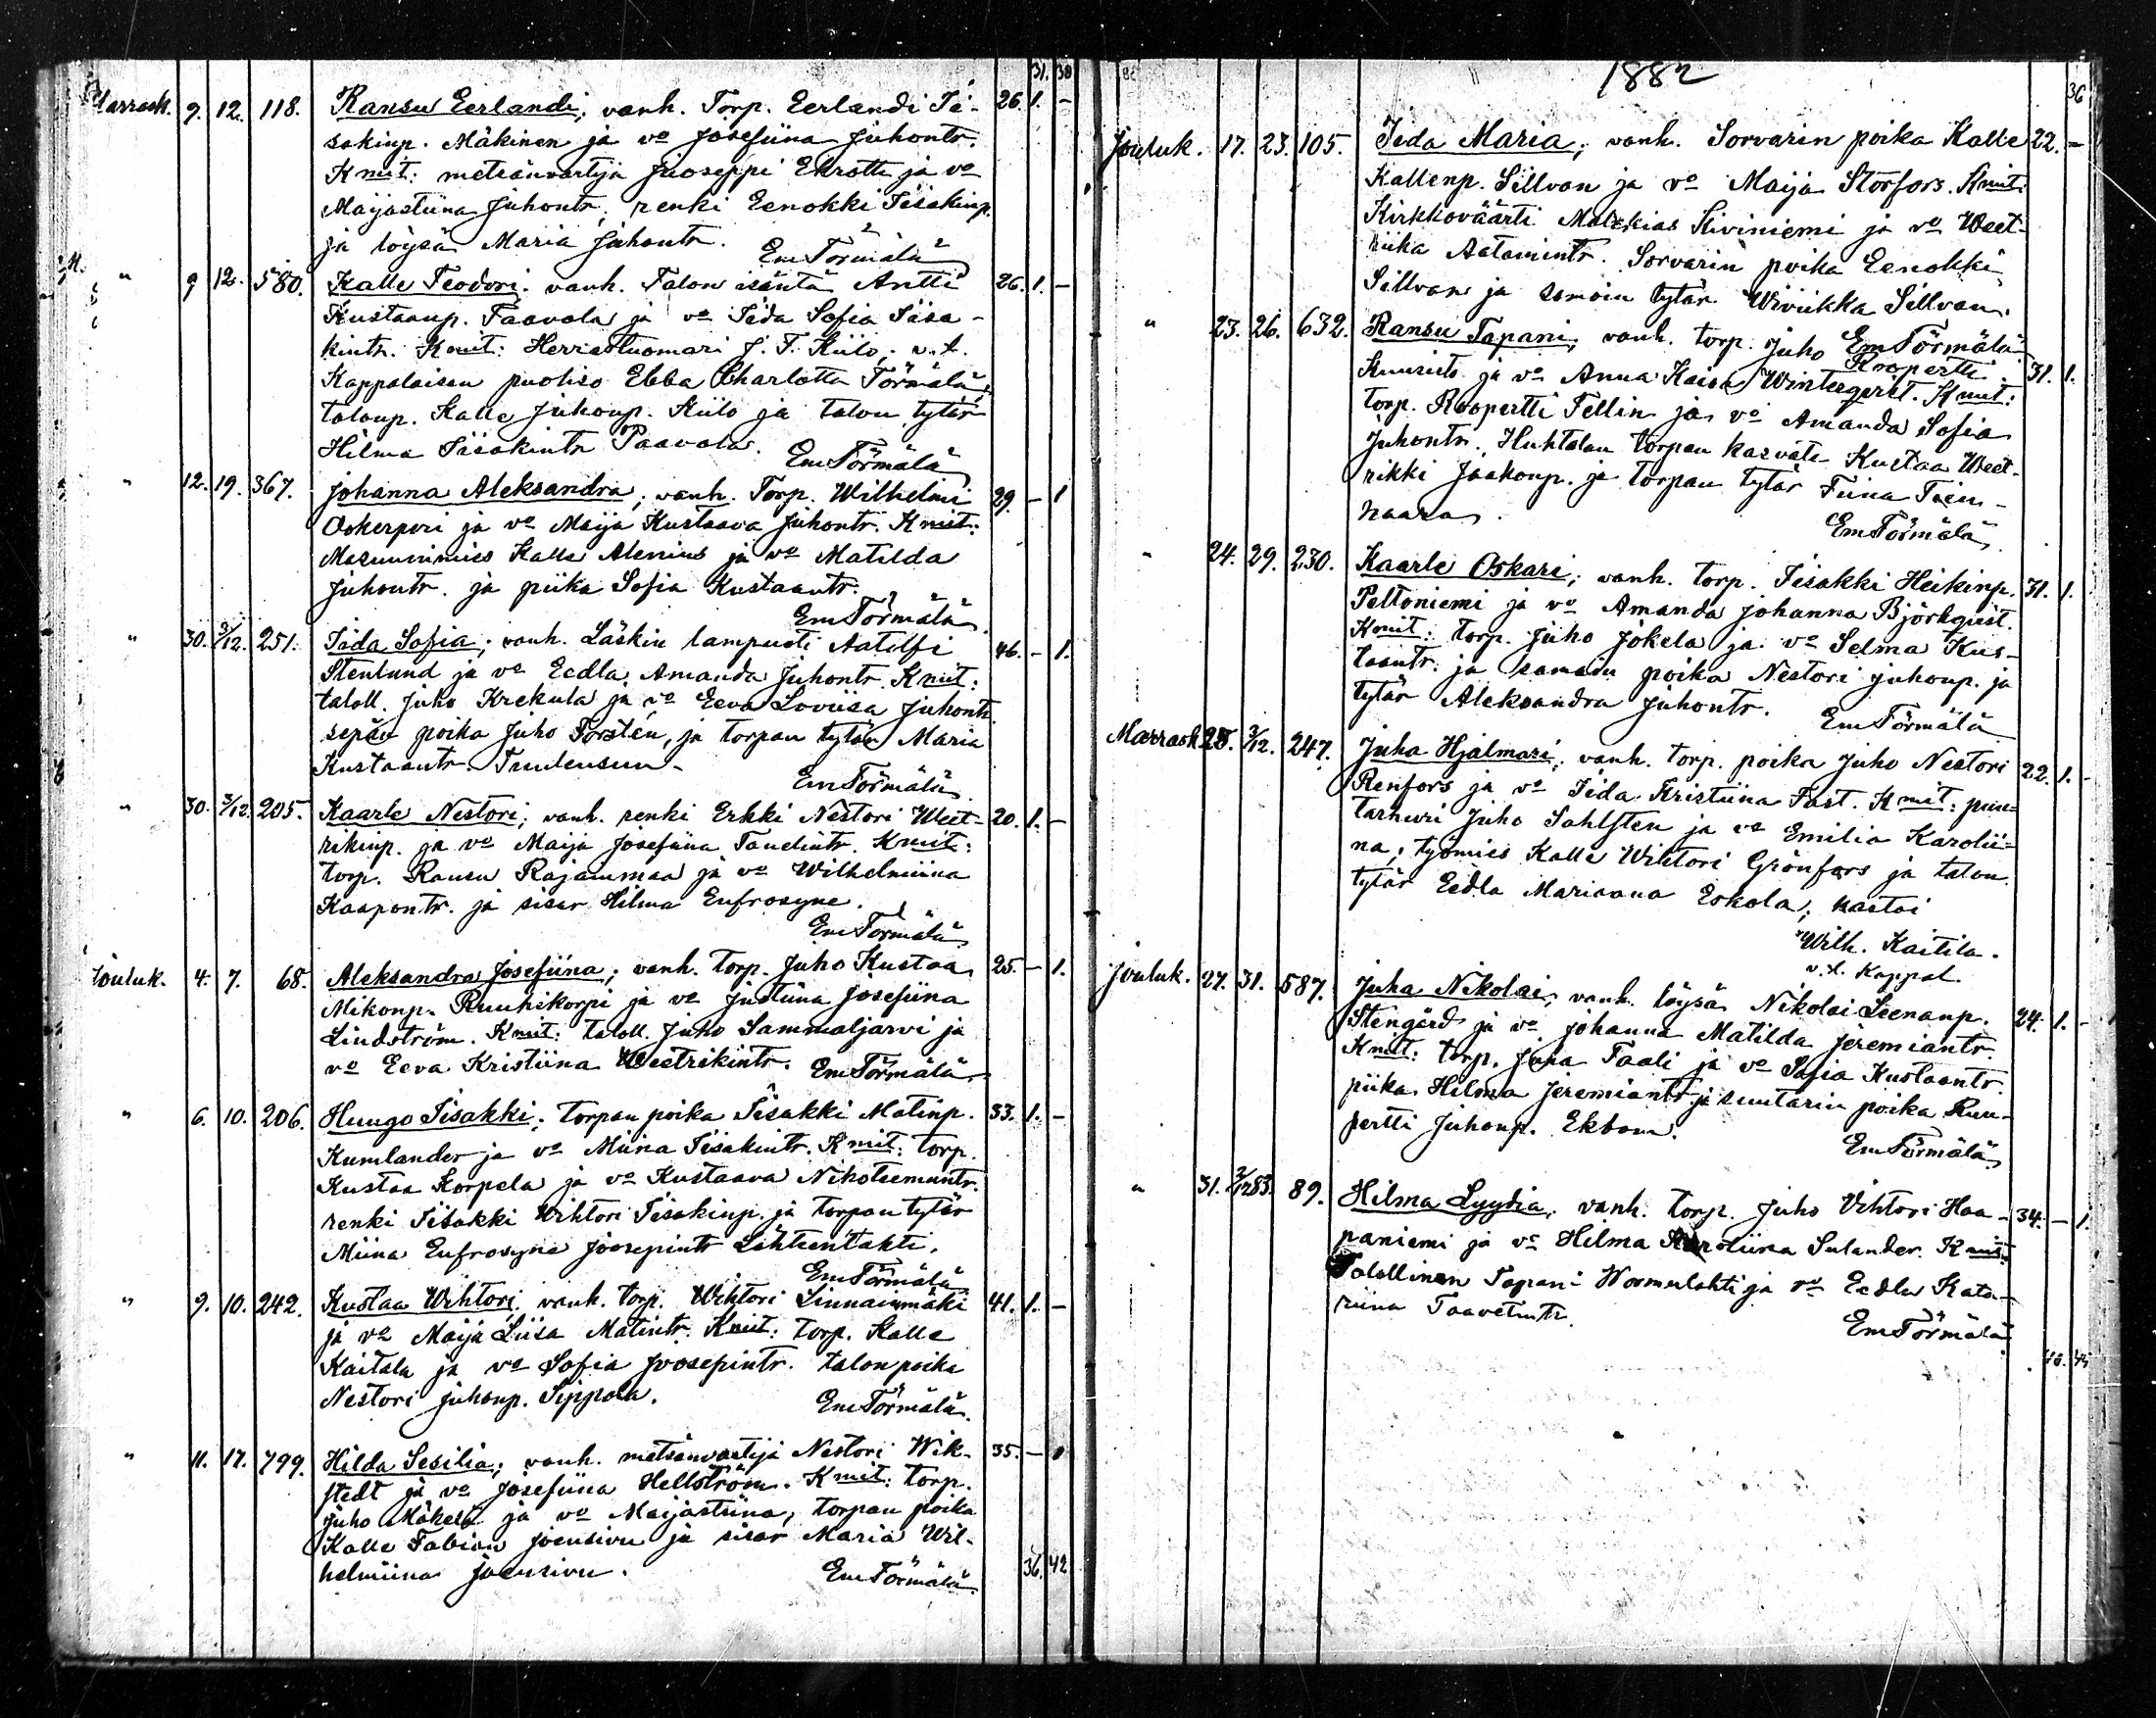 31. 38
Marrask. 9. 12. 118. Ransu Eerlandi; vanh. Torp. Eerlandi Ii- 26. 1. –
sakinp. Mäkinen ja vo Josefiina Juhontr.
Kmit: metsänvartija Juoseppi Ekrotti ja vo
Maijastiina Juhontr, renki Eenokki Iisakinp.
ja löysä Maria Juhontr.
Em Törmälä
" 9 12. 580. Kalle Teodori; vanh. Talon isäntä Antti 26. 1. –
Kustaanp. Paavola ja vo Iida Sofia Iisa-
kintr. Kmit: Herrastuomari J. F. Kiilo; v.t.
Kappalaisen puoliso Ebba Charlotta Törmälä;
taloup. Kalle Juhonp. Kiilo ja talon tytär
Hilma Iisakintr Paavola.
Em Törmälä
" 12. 19. 367. Johanna Aleksandra; vanh. Torp. Wilhelmi 29. – 1
Ookerperi ja vo Maija Kustaava Juhontr. Kmit:
Masuunimies Kalle Alenius ja vo Matilda
Juhontr. ja piika Sofia Kustaantr.
Em Törmälä
" 30. 3/12. 251. Iida Sofia; vanh. Läskin lampuoti Aatolfi 46. – 1.
Stenlund ja vo Eedla Amanda Juhontr. Kmit:
taloll. Juho Krekula ja vo Eeva Loviisa Juhontr.
sepän poika Juho Torsten, ja torpan tytär Maria
Kustaantr. Tuulensuu.
Em Törmälä
" 30. 3/12. 205. Kaarle Nestori; vanh. renki Erkki Nestori Weet- 20. 1. –
rikinp. ja vo Maija Josefiina Tanelintr. Kmit:
torp. Ransu Rajammaa ja vo Wilhelmiina
Kaapontr. ja sisar Hilma Eufrosyne.
Em Törmälä
Jouluk. 4. 7. 68. Aleksandra Josefiina; vanh. torp. Juho Kustaa 25. – 1.
Mikonp. Ruuhikorpi ja vo Justiina Josefiina
Lindström. Kmit: taloll. Juho Sammaljärvi ja
vo Eeva Kristiina Weetrikintr. Em Törmälä
" 6. 10. 206. Huugo Iisakki; torpan poika Iisakki Matinp. 33. 1. –
Kumlander ja vo Miina Iisakintr. Kmit: torp.
Kustaa Korpela ja vo Kustaava Nikoteemuntr.
renki Iisakki Wihtori Iisakinp. ja torpan tytär
Miina Eufrosyne Joosepintr Lähteenlahti.
Em Törmälä
" 9. 10. 242. Kustaa Wihtori; vanh. torp. Wihtori Linnainmäki 41. 1. –
ja vo Maija Liisa Matintr. Kmit: torp. Kalle
Kaitala ja vo Sofia Joosepintr. talonpoika
Nestori Juhonp. Sippola.
Em Törmälä
" 11. 17. 799. Hilda Sesilia; vanh. metsänvartija Nestori Wik- 35. – 1
stedt ja vo Josefiina Hellström. Kmit: torp.
Juho Mäkelä ja vo Maijastiina, torpan poika
Kalle Fabian Joensivu ja sisar Maria Wil-
helmiina Joensivu.
Em Törmälä
36. 42
1882
36
Jouluk. 17. 23. 105. Iida Maria; vanh. Sorvarin poika Kalle 22. –
Kallenp. Sillvan ja vo Maija Storfors. Kmit:
Kirkkoväärti Malakias Kiviniemi ja vo Weet-
riika Aatamintr. Sorvarin poika Eenokki
Sillvan ja samoin tytär Wiviikka Sillvan.
Em Törmälä
" 23. 26. 632. Ransu Tapani; vanh. torp. Juho Ruopertti 31. 1.
Kuusisto ja vo Anna Kaisa Wintergvist. Kmit:
torp. Roopertti Fellin ja vo Amanda Sofia
Juhontr. Huhtalan torpan kasvate Kustaa Weet-
rikki Jaakonp. ja torpan tytär Fiina Tien-
haara.
Em Törmälä
" 24. 29. 230. Kaarle Oskari; vanh. torp. Iisakki Heikinp. 31. 1.
Peltoniemi ja vo Amanda Johanna Björkqvist.
Kmit: torp. Juho Jokela ja vo Selma Kus-
taantr. ja samoin poika Nestori Juhonp. ja
tytär Aleksandra Juhontr.
Em Törmälä
Marrask. 25. 3/12. 247. Juha Hjalmari; vanh. torp. poika Juho Nestori 22. 1. –
Renfors ja vo Iida Kristiina Fast. Kmit: puu-
tarhuri Juho Sahlsten ja vo Emilia Karolii-
na; työmies Kalle Wihtori Grönfors ja talon
tytär Eedla Mariaana Eskola; kastoi
Wilh. Kaitila.
v.t. Kappal.
Jouluk. 27. 31. 587. Juha Nikolai; vanh. löysä Nikolai Leenanp. 24. 1. –
Stengård ja vo Johanna Matilda Jeremiantr.
Kmit: torp. Juha Taali ja vo Sofia Kustaantr.
piika Hilma Jeremiantr. ja suutarin poika Ruu-
pertti Juhonp. Ekbom.
Em Törmälä
" 31. 2/1283. 89. Hilma Lyydia; vanh. torp. Juho Wihtori Haa- 34. – 1.
paniemi ja vo Hilma Karoliina Sulander. Kmit:
Talollinen Tapani Wormulahti ja vo Eedla Kata-
riina Taavetintr.
Em Törmälä